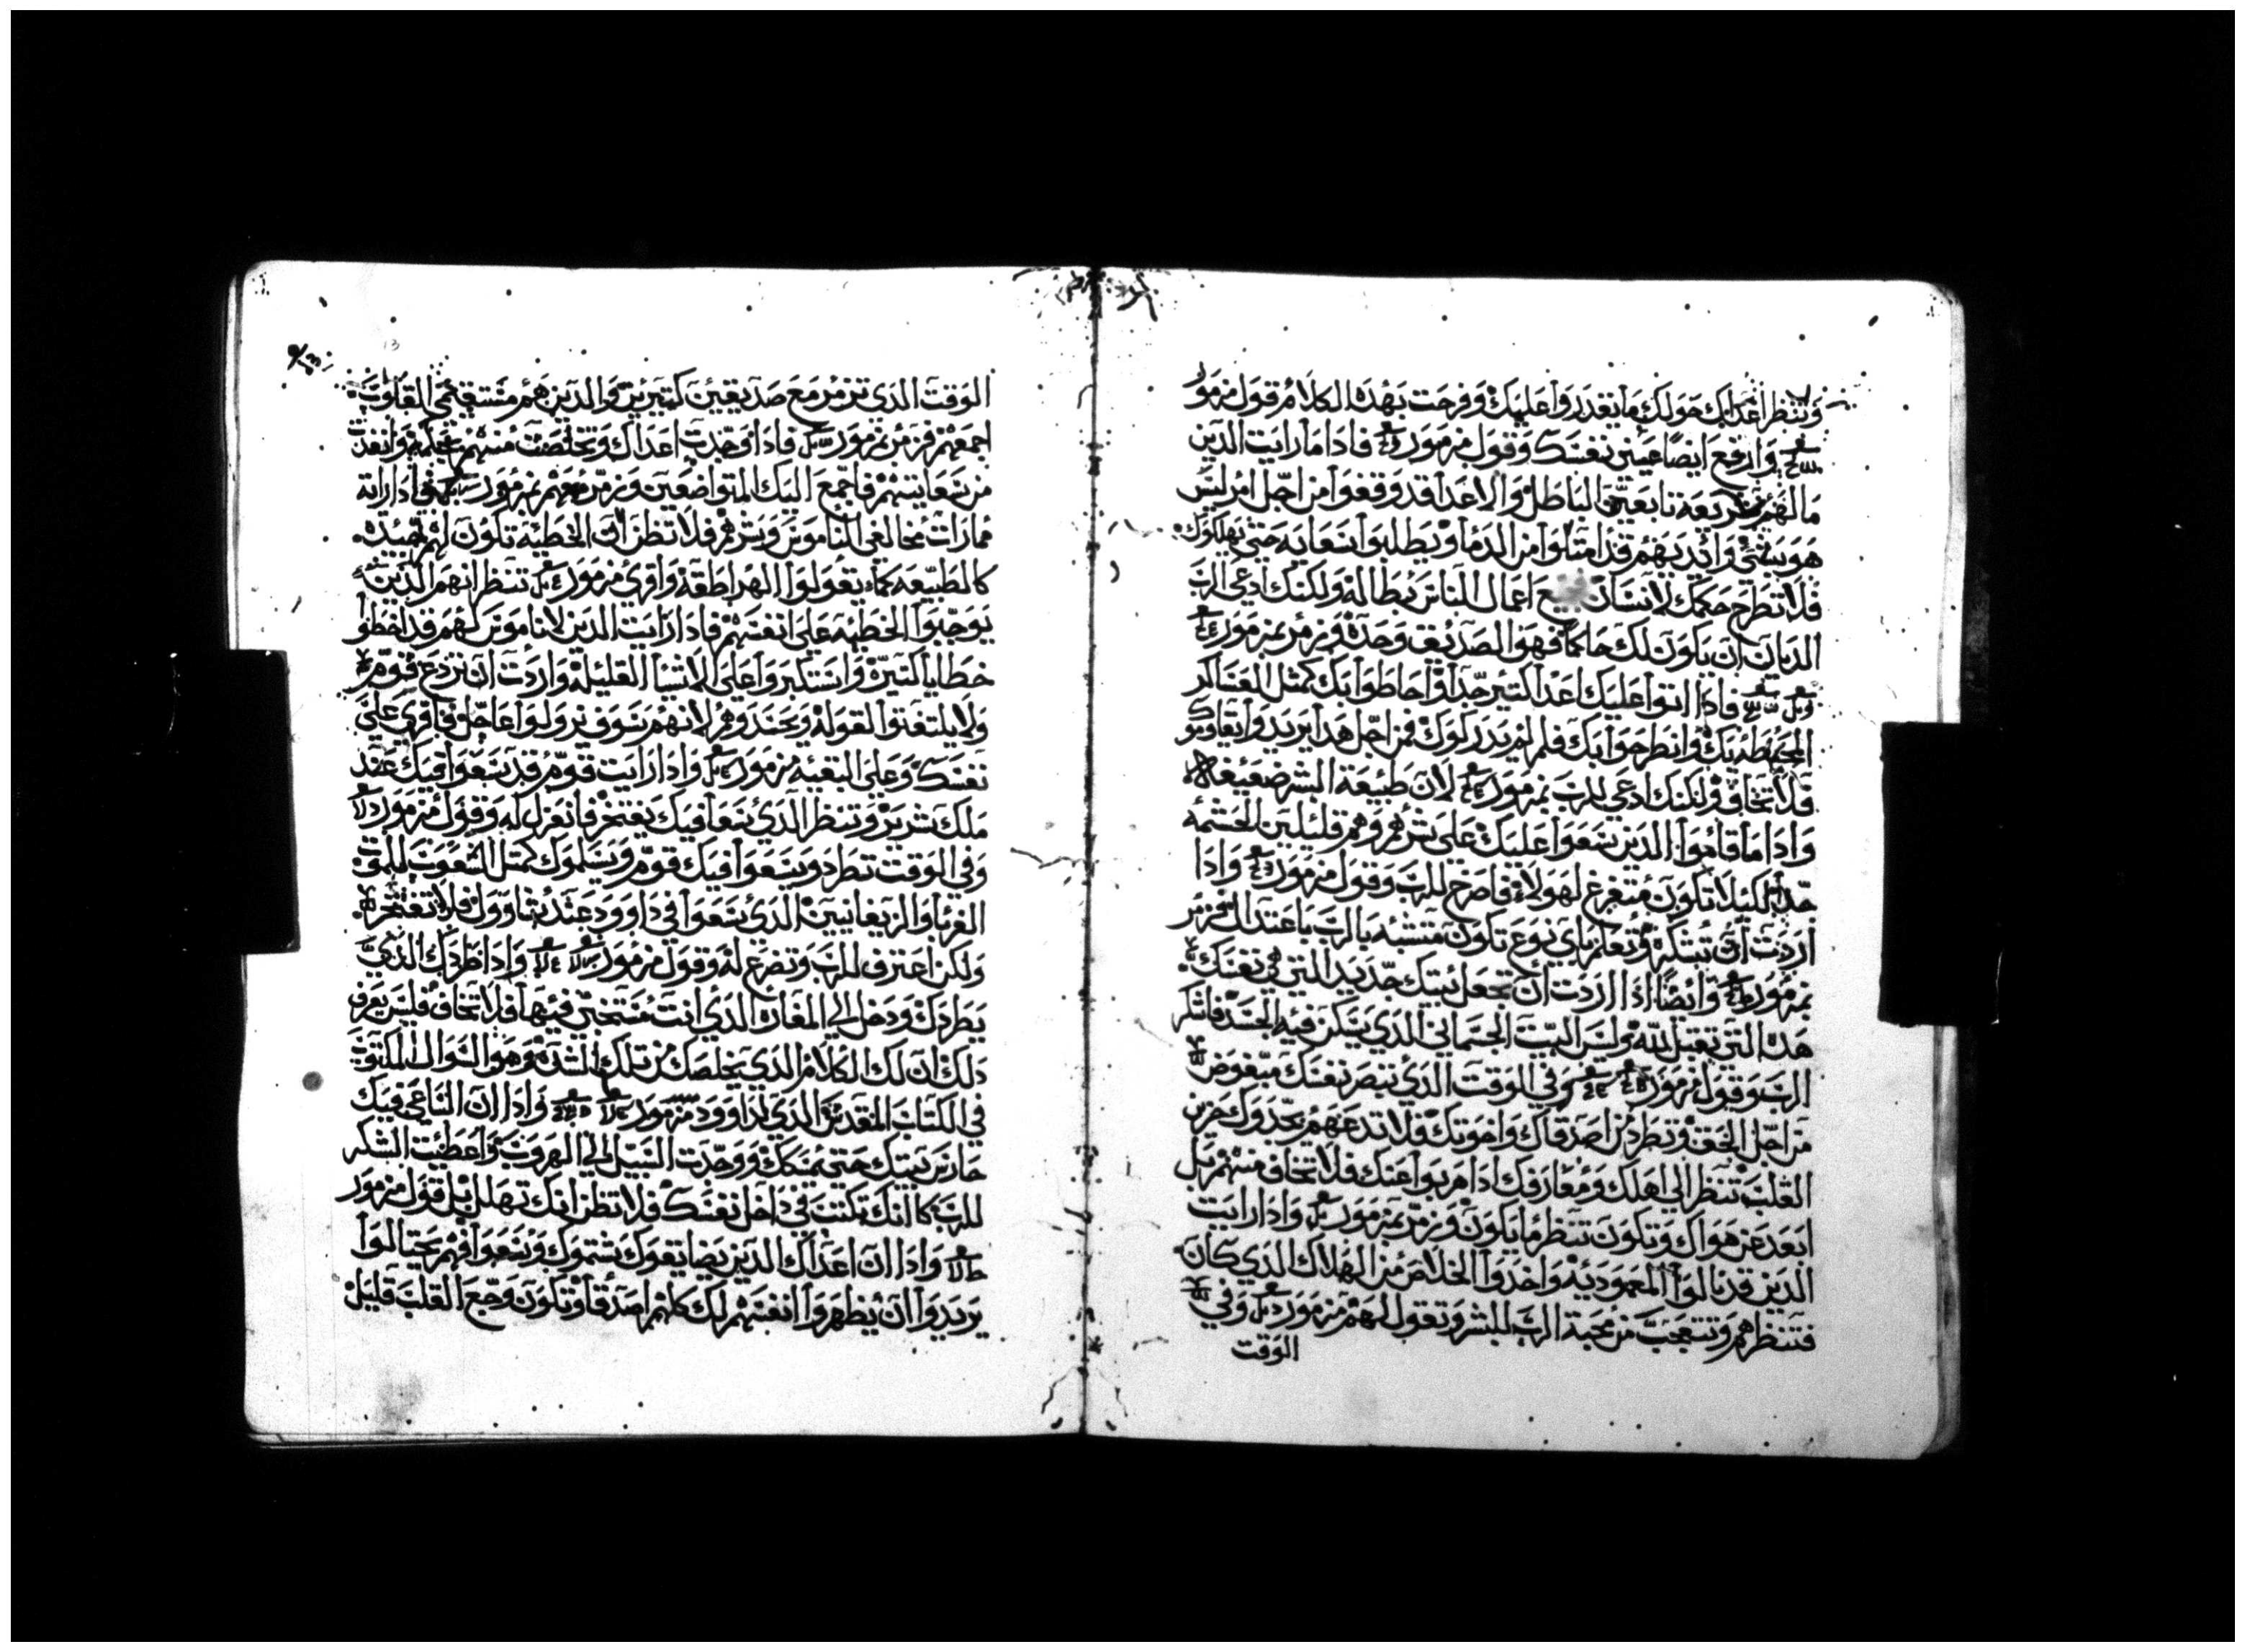 وتنظر اعداك حولك ما يقدروا عليك وفرحت بهده الكلام قول مزمور
وارفع ايضا عينين نفسك وقول مزمور فادا ما رايت الدين
ما لهم شريعه تابعين الباطل والاعدا قد وقفوا من اجل امر ليس
هو بشي وايديهم قد امتلوا من الدما ويطلبوا بسعايه حتى يهلكوك
فلا تطرح حكمك لانسان اعمال الناس بطاله ولكنك ادعي الرب
الديان ان يكون لك حاكما فهو الصديق وحده وزمر بمزمور
فادا اتوا عليك اعدا كتير جدا واحاطوا بك كمتل العساكر
المحيطه بك وانطرحوا بك فلم يدركوك فمن اجل هدا يريدوا يقاوموك
فلا تخاف ولكنك ادعي للرب بمزمور لان طبيعة البشر ضعيفه
وادا ما قاموا الدين يسعوا عليك على شرهم وهم قليلين الحشمه
جدا لكيلا تكون متفرغ لهولاء فاصرخ للرب وقول مزمور وادا
اردت ان تشكر وتعلم باي نوع تكون متشبه بالرب باعتدال فزمر
بمزمور وايضا ادا اردت ان تجعل بيتك جديد التي هي نفسك
هده التي تقبل الله وليس البيت الجسماني الدي يسكن فيه الجسد فاشكر
الرب وقول مزمور وفي الوقت الدي تبصر نفسك مبغوض
من اجل الحق وتطرد من اصدقاك واخوتك فلا تدعهم يجدوك حزين
القلب تنظر الى اهلك ومعارفك ادا هربوا عنك فلا تخاف منهم بل
ابعد عن هواك وتكون تنظر ما يكون وزمر بمزمور وادا رايت
الدين قد نالوا المعموديه واخدوا الخلاص من الهلاك الدي كان
فتنظرهم وتتعجب من محبة الرب للبشر وتقول لهم مزمور وفي
الوقت
الوقت الدي تزمر مع صديقين كتيرين والدين هم مستقيمي القلوب
اجمعهم فزمر بمزمور فادا وجدت اعداك وتخلصت منهم بحكمه وانقدت
من سعايتهم فاجمع اليك المتواضعين وزمر معهم بمزمور ادا راية
ممارات مخالفي الناموس وشرهم فلا تظن ان الخطيه تكون لهم
كالطبيعه كما يقولوا الهراطقه واقرى مزمور تنظر انهم الدين
يوجبوا الخطيه على انفسهم فادا رايت الدين لا ناموس لهم قد اخطوا
خطايا كتيره واستكبروا على الاشيا القليله واردت ان تردع قوم
ولا يلتفتوا لقوله ويحسدوهم لانهم سوف يزولوا عاجل فاقري على
نفسك وعلى البقيه مزمور وادا رايت قوم قد سعوا فيك عند
ملك شرير وتنظر الدي يسعا فيك يفتخر فانعزل له وقول مزمور
وفي الوقت تطرد ويسعوا فيك قوم ويسلموك كمتل الشعوب للموت
الغربا والزيفانيين الدي يسعوا في داوود عند شاوول فلا
ولكن اعترف للرب وتضرع له وقول مزمور وادا طردك الدي
يطردك ودخل الى المغاره الدي انت مستخبي فيها فلا تخاف فليس يعرف
دلك ان لك الكلام الدي يخلصك من تلك الشده وهو السوال المكتوب
في الكتاب المقدس الدي لداوود مزمور وادا ان الساعي فيك
حارس بيتك حتى يمسكك ووجدت السبيل الى الهروب واعطيت الشكر
للرب كما انك تكتب في داخل نفسك فلا تظن انك تهلك بل قول مزمور
وادا ان اعداك الدين يضايقوك يشتموك ويسعوا فهم يحتالوا
يريدوا ان يظهروا انفسهم لك كلهم اصدقا وتكون وجع القلب قليل